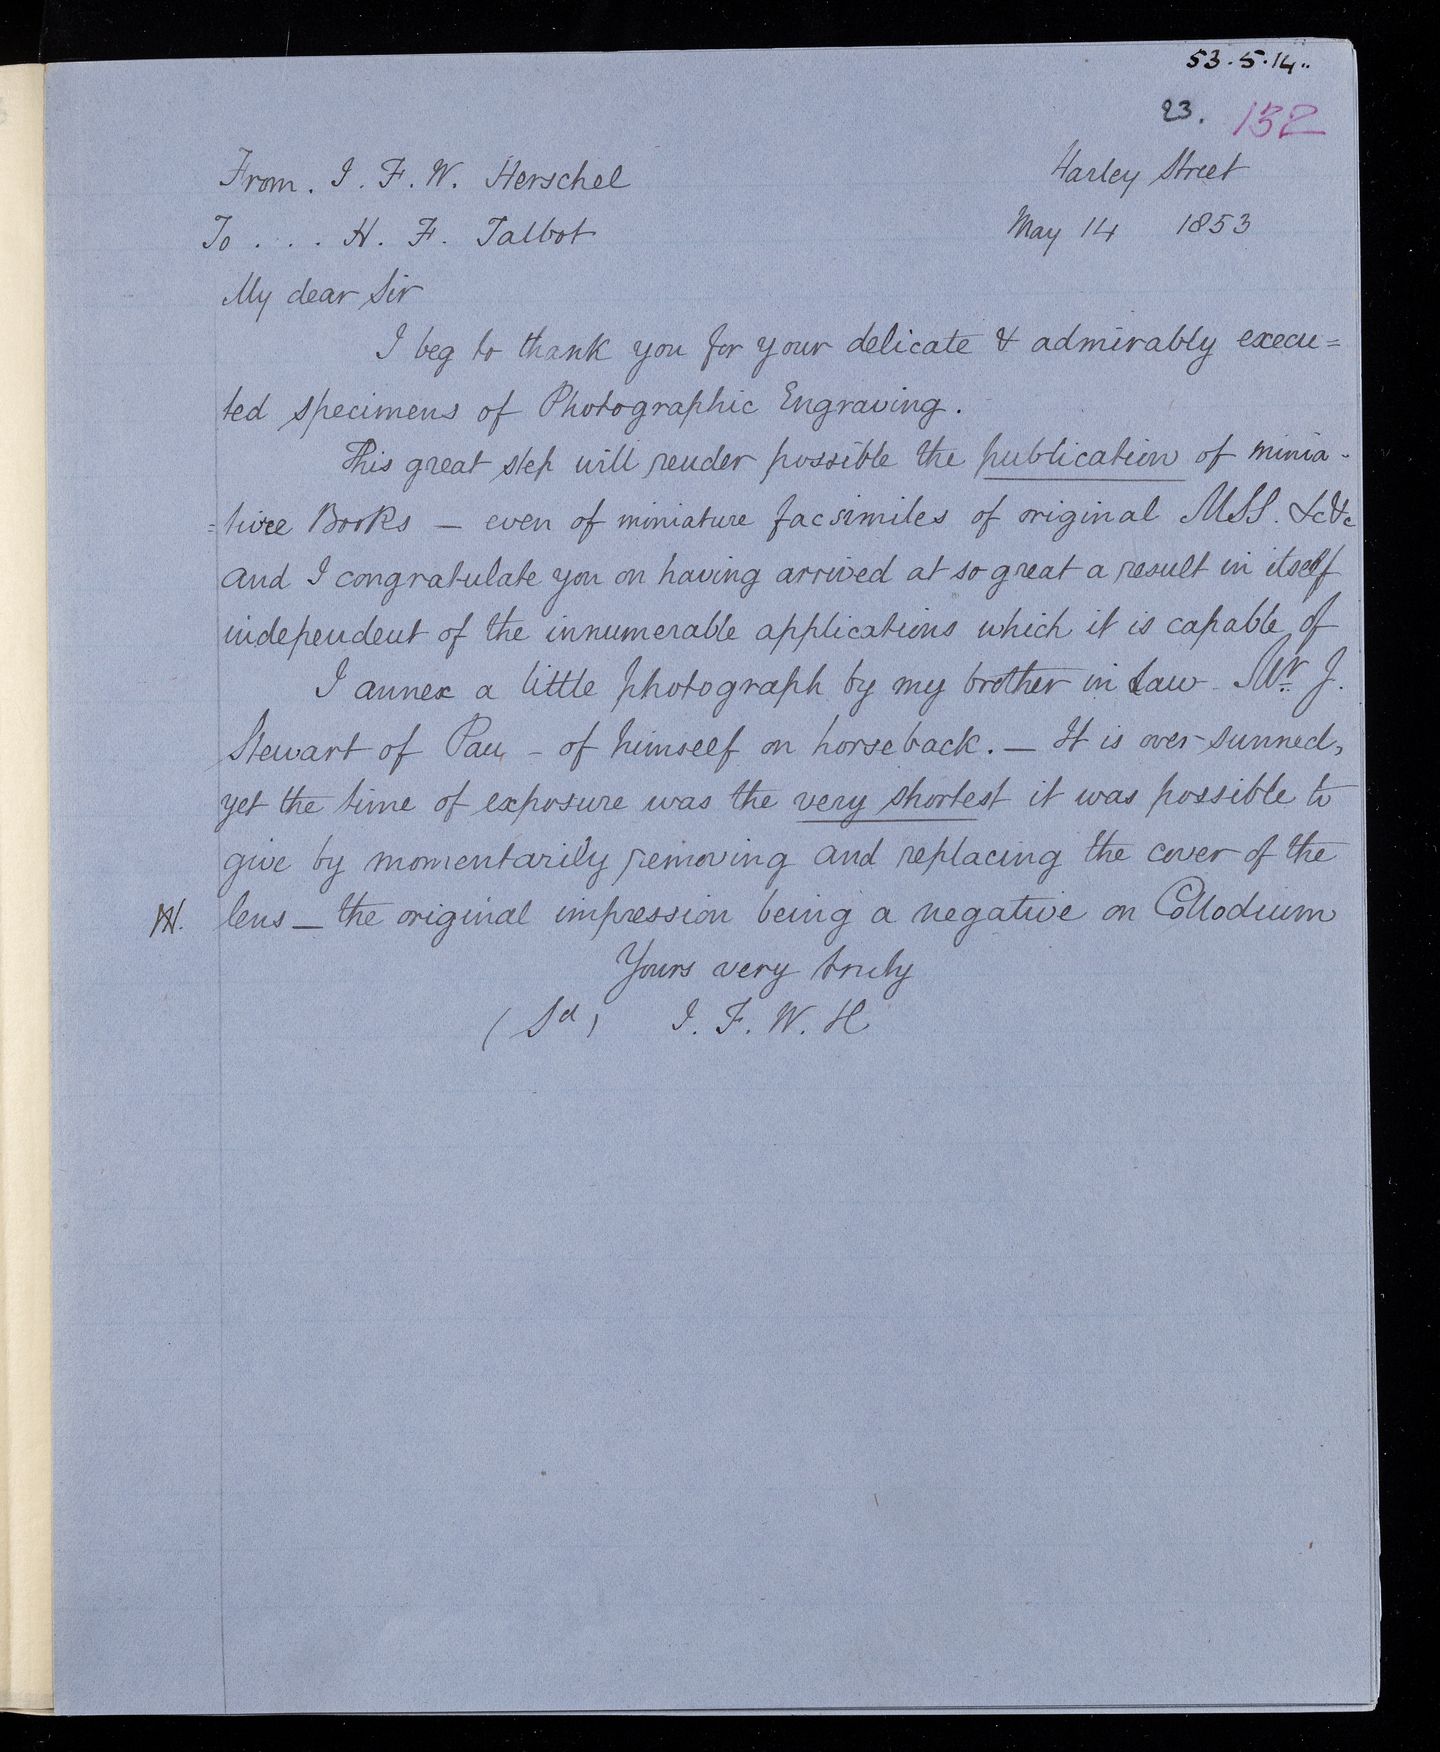 53.5.14..
23. 132
From. I. F. W. Herschel
Harley Street
To . . . H. F. Talbot
May 14 1853
My dear Sir
I beg to thank you for your delicate & admirably execu=
ted specimens of Photographic Engraving.
This great step will render possible the publication of minia-
=ture Books — even of miniature facsimiles of original MSS. &c &c
and I congratulate you on having arrived at so great a result in itself
independent of the innumerable applications which it is capable of
I annex a little photograph by my brother in law Mr J.
Stewart of Pau, – of himself on horseback. — It is over sunned,
yet the time of exposure was the very shortest it was possible to
give by momentarily removing and replacing the cover of the
lens — the original impression being a negative on Collodium
Yours very truly
(Sd) I. F. W. H